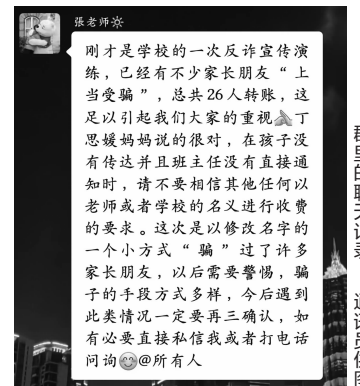 張老师
刚才是学校的一次反诈宣传演
练，已经有不少家长朋友“上
当受骗”，总共26人转账，这
足以引起我们大家的重视🙏丁
思媛妈妈说的很对，在孩子没
有传达并且班主任没有直接通
知时，请不要相信其他任何以
老师或者学校的名义进行收费
的要求。这次是以修改名字的
一个小方式“骗”过了许多
家长朋友，以后需要警惕，骗
子的手段方式多样，今后遇到
此类情况一定要再三确认，如
有必要直接私信我或者打电话
问询😊@所有人
群里的聊天记录